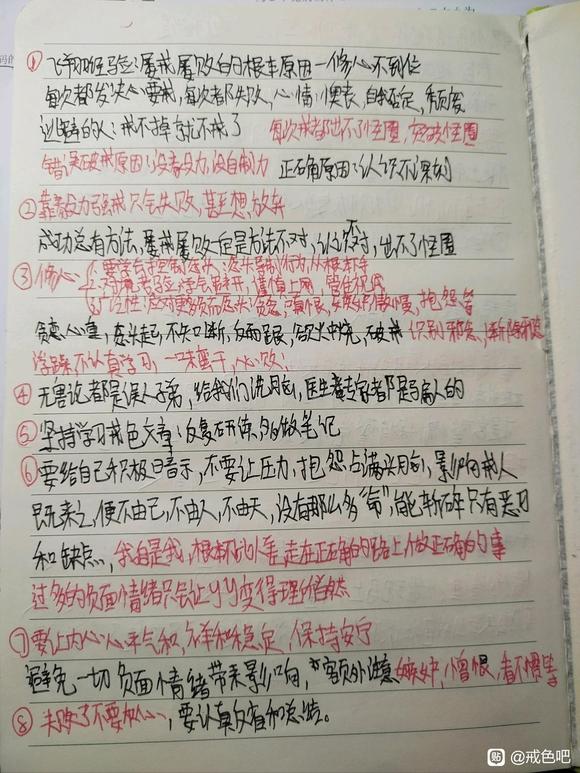 ① 飞翔哥经验：屡戒屡败的根本原因—修心不到位
每次都发决心要戒，每次都失败，心情沮丧，自我否定，颓废
逃避的人：戒不掉了就不戒了 每次戒都出不了怪圈，突破怪圈
错误破戒原因：没毅力，没自制力 正确原因：认识不深刻
② 靠毅力强戒只会失败，甚至想放弃
成功总有方法，屡戒屡败一定是方法不对，认识不对，出不了怪圈
③ 修心 1. 要学会控制念头：念头导制行为，从根本
2. 对境考验，谨慎上网，管住视线
3. 广泛性：应对更多负面念头：贪念，嗔恨，傲慢，抱怨等
贪恋心重，念头起，不知断，反而跟，欲火中烧，破戒 识别邪念，断除邪念
学躁不认真学习，一味蛮干，必败；
④ 无害论都是误人子弟，给我们洗脑，医生砖专家都是骗人的
⑤ 坚持学习戒色文章：反复研读，多做笔记
⑥ 要给自己积极暗示，不要让压力，抱怨占满头脑，影响戒人
既来之，便不由己，不由人，不由天，没有那么多“命”，能斩碎只有恶习
和缺点，我自是我，根本不必多虑，走在正确的路上做正确的事
过多的负面情绪只会让YY变得理所当然
⑦ 要让内心心平气和，祥和稳定，保持安宁
避免一切负面情绪带来影响，额外注意嫉妒，憎恨，看不惯等
⑧ 失败了不要灰心，要认真反省和总结。
贴 @戒色吧